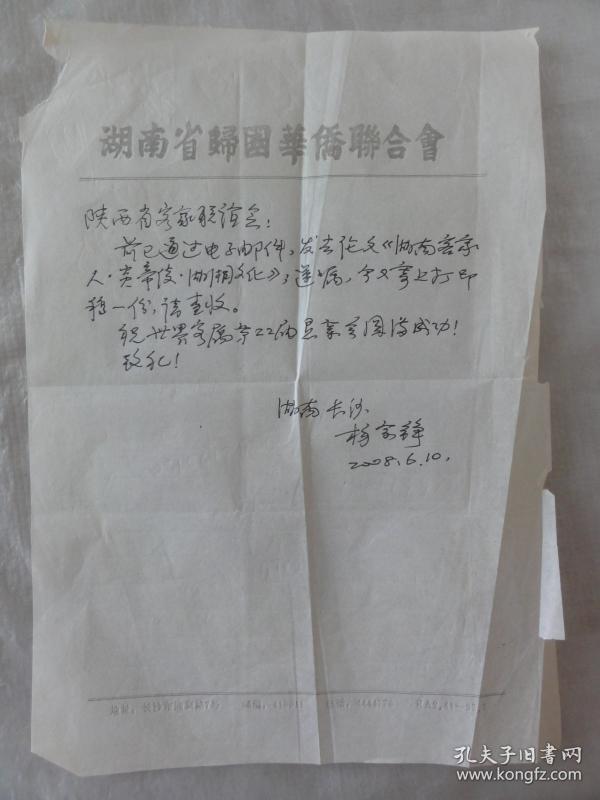 湖南省歸國華僑聯合會
陕西省客家联谊会：
前已通过电子邮件，发去论文《湖南客家
人·炎帝侯·湖湘文化》；遵嘱，今又寄上打印
稿一份，请查收。
祝世界客属第22届恳亲大会圆满成功！
致礼！
湖南长沙
杨宗铮
2008.6.10.
孔夫子旧书网
www.kongfz.com